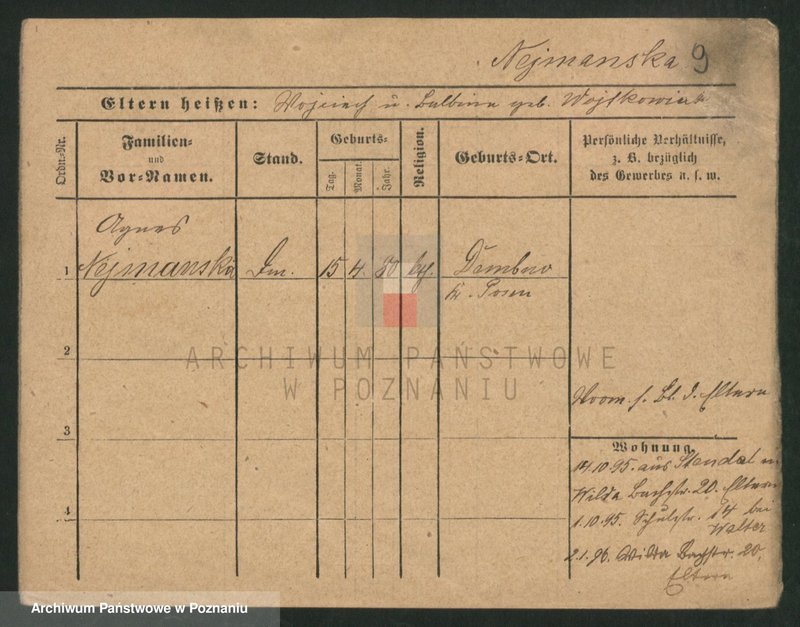 Nejmanska 9
Eltern heißen: Wojciech u. Balbina geb. Wojtkowiak
Ordn-Nr.
Familien-
und
Vor-Namen.
Stand.
Geburts-
Tag.
Monat.
Jahr.
Religion.
Geburts-Ort.
Persönliche Verhältnisse,
z. B. bezüglich
des Gewerbes u. s. w.
Agnes
1 Nejmanska 15 4 80 kth. Dembno
Kr. Posen
2
ARCHIWUM PAŃSTWOWE
W POZNANIU
s. Bl. d. Eltern
3
Wohnung.
14.10.95. aus Stendal in
Wilda Bachstr. 20. Eltern
1.10.95. Schulstr. 14 bei
Walter
4
2.1.96. Wilda Bachstr. 20.
Eltern
Archiwum Państwowe w Poznaniu